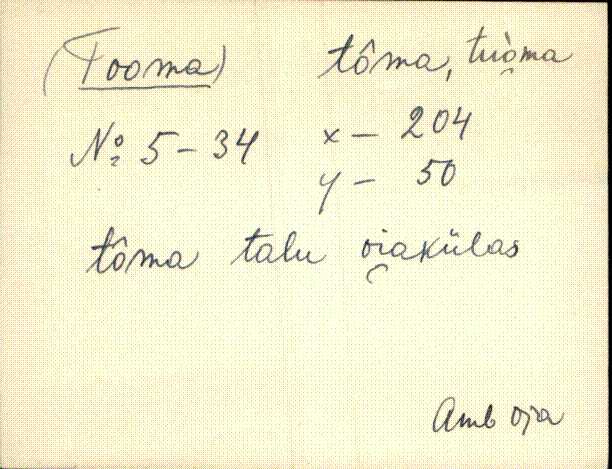 (Tooma) tôma, tuo̯ma
No 5 - 34 x - 204
y - 50
tôma talu oi̯akülas
Amb Oja